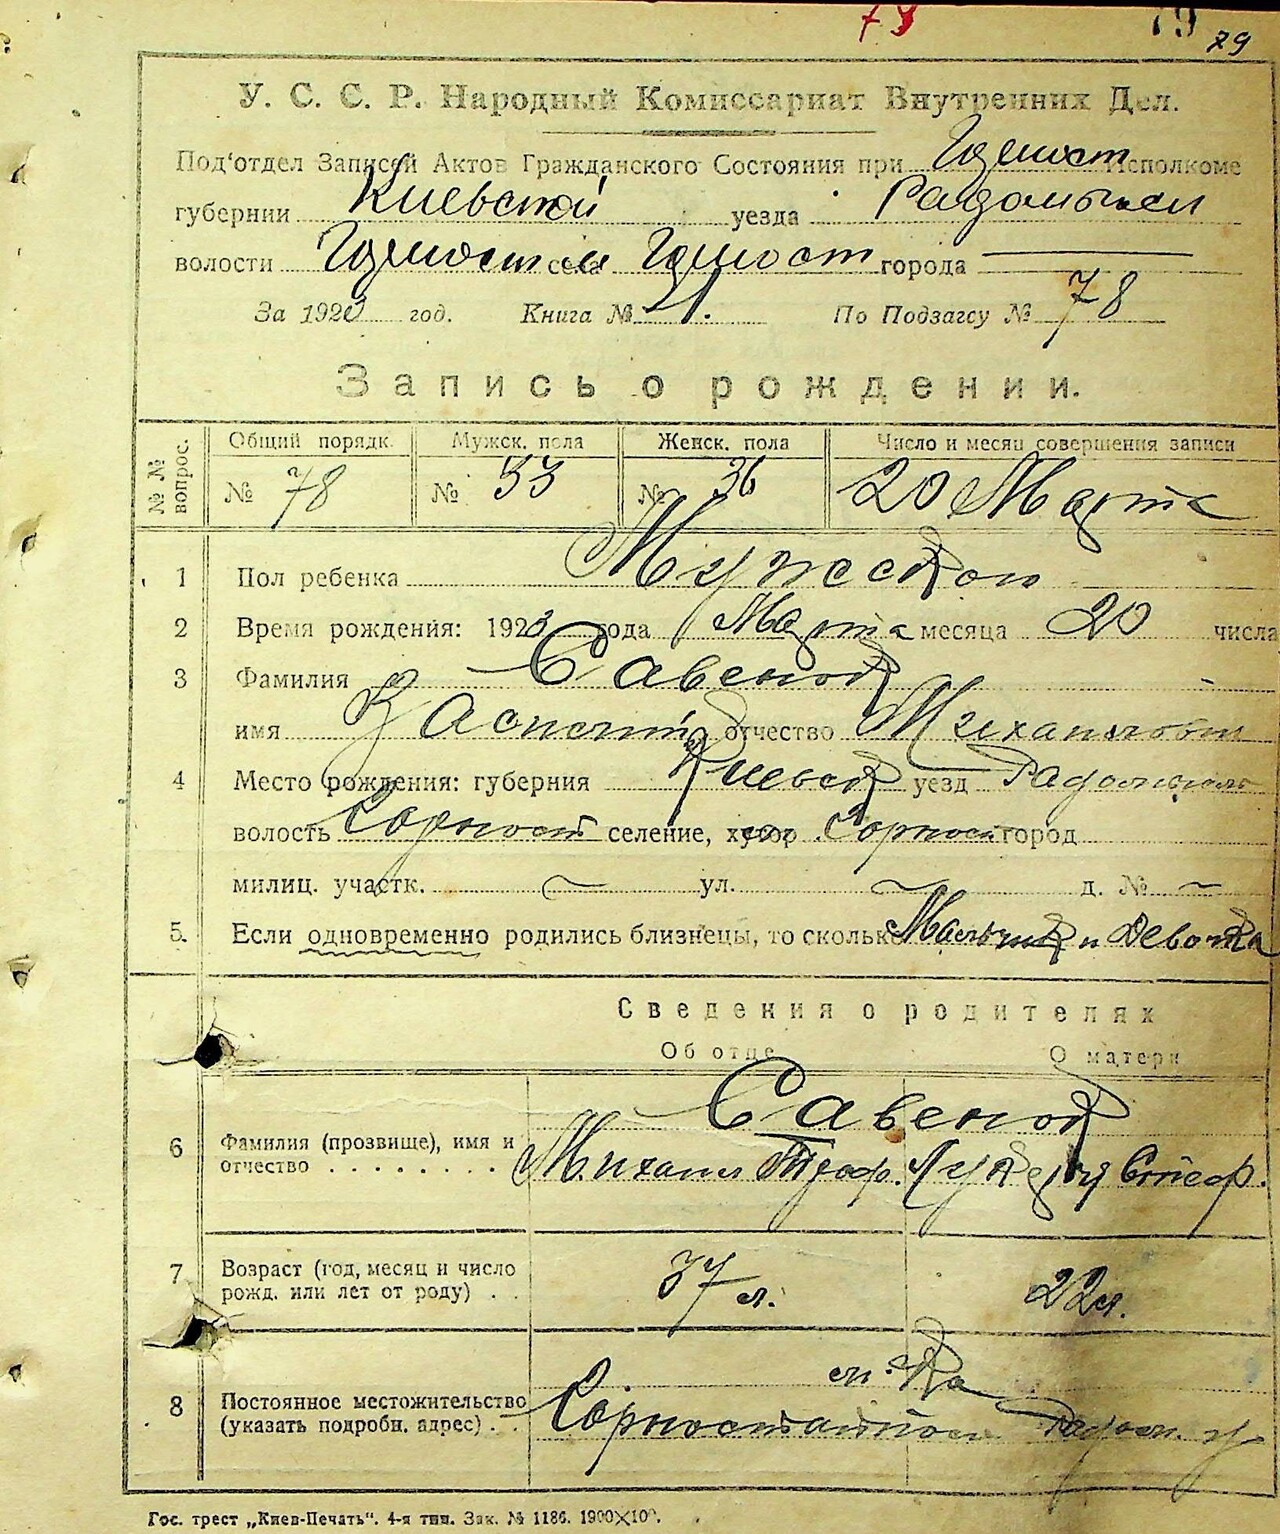 79 79 79
У. С. С. Р. Народный Комиссариат Внутренних Дел.
Под'отдел Записей Актов Гражданского Состояния при Исполкоме
губернии Киевской уезда Радомысл
волости села города
За 1923 год. Книга № 1. По Подзагсу № 78
Запись о рождении.
№ № вопрос. Общий порядк. Мужск. пола Женск. пола Число и месяц совершения записи
№ 78 № 53 № 36 20 Марта
1 Пол ребенка Мужеской
2 Время рождения: 1923 года Марта месяца 20 числа
3 Фамилия Савенок
имя отчество Михайлович
4 Место рождения: губерния Киевск уезд Радомысль
волость Горност селение, хутор Горност город
милиц. участк. ~ ул. ~ д. № ~
5. Если одновременно родились близнецы, то сколько Мальчик и Девочка
Сведения о родителях
Об отце О матери
Савенок
6 Фамилия (прозвище), имя и
отчество . . . . . . . . . Михаил Троф. Лукерья Стеф.
7 Возраст (год, месяц и число
рожд. или лет от роду) . . 37 л. 22 л.
8 Постоянное местожительство
(указать подробн. адрес) . . м-ка
Горностайполь Радом. у
Гос. трест „Киев-Печать". 4-я тип. Зак. № 1186. 1900×100.